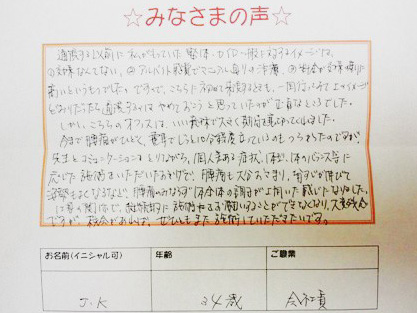 ☆みなさまの声☆
通院する以前に私がもっていた整体・カイロ一般に対するイメージは、
①効果なんてない、②アルバイト感覚でマニュアル通りの治療、③料金が効果の割に
高いというものでした。ですので、こちらに初めて来院するときも、一回行ってみて上のイメージ
どおりだったら通院するのはやめておこうと思っていたのが正直なところでした。
しかし、こちらのオフィスは、いい意味で大きく期待を裏切ってくれました。
今まで腰痛がひどく、電車でじっと10分程度立っているのもつらかったのですが、
先生とコミュニケーションをとりながら、個人差ある症状、体格、体のバランス等に
応じた施術をいただいたおかげで、腰痛も大分おさまり、背すじが伸びて
姿勢もよくなるなど、腰痛のみならず体全体の調子が上向いた感じになりました。
で、定期的に施術をお願いすることができなくなり、大変残念
ですが、機会があれば、ぜひともまた施術していただきたいです。
お名前(イニシャル可) 年齢 ご職業
J.K 24歳 会社員